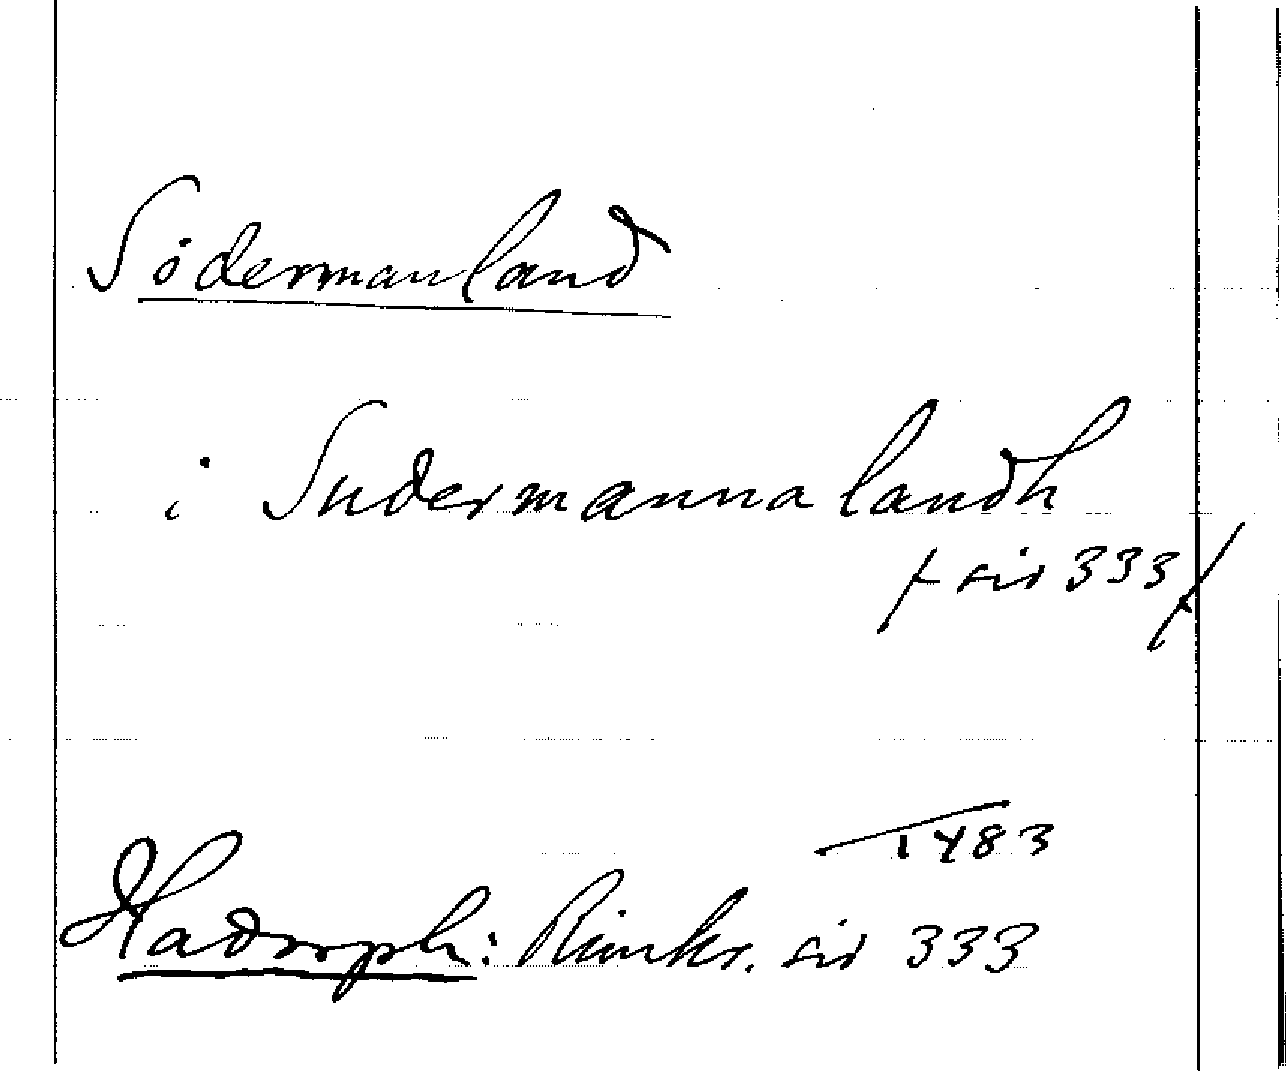 Södermanland
i Sudermannalandh
f sid 333 f
1483
Hadorph: Rimkr. sid 333